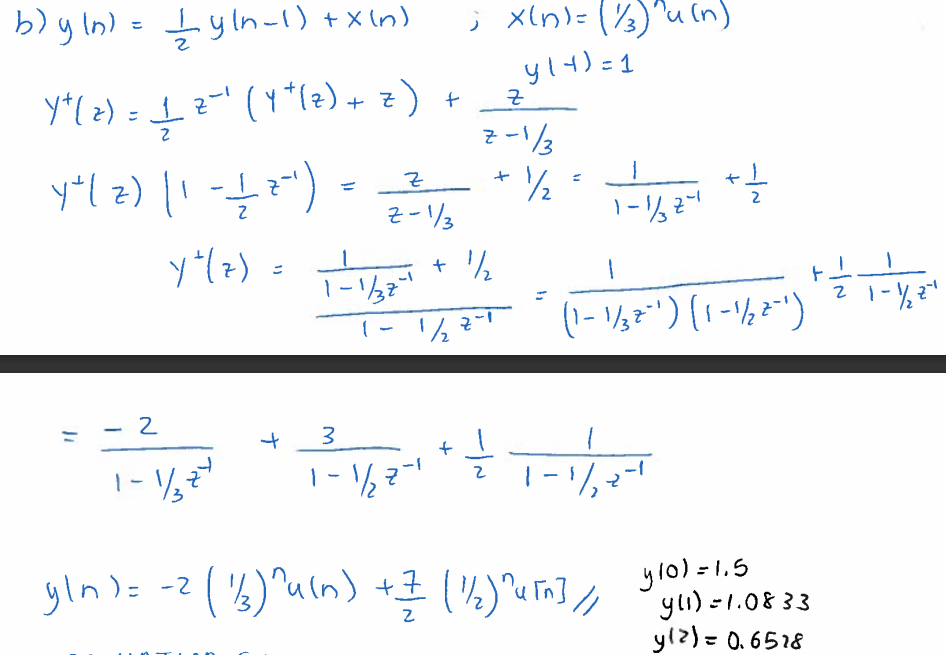 b) y(n) = 1/2 y(n-1) + x(n) ; x(n) = (1/3)^n u(n)
y(-1) = 1
Y^+(z) = 1/2 z^-1 (Y^+(z) + z) + z/(z - 1/3)
Y^+(z) (1 - 1/2 z^-1) = z/(z - 1/3) + 1/2 = 1/(1 - 1/3 z^-1) + 1/2
Y^+(z) = (1/(1 - 1/3 z^-1) + 1/2)/(1 - 1/2 z^-1) = 1/((1 - 1/3 z^-1)(1 - 1/2 z^-1)) + 1/2 1/(1 - 1/2 z^-1)
= -2/(1 - 1/3 z^-1) + 3/(1 - 1/2 z^-1) + 1/2 1/(1 - 1/2 z^-1)
y(n) = -2 (1/3)^n u(n) + 7/2 (1/2)^n u[n] //
y(0) = 1.5
y(1) = 1.0833
y(2) = 0.6528